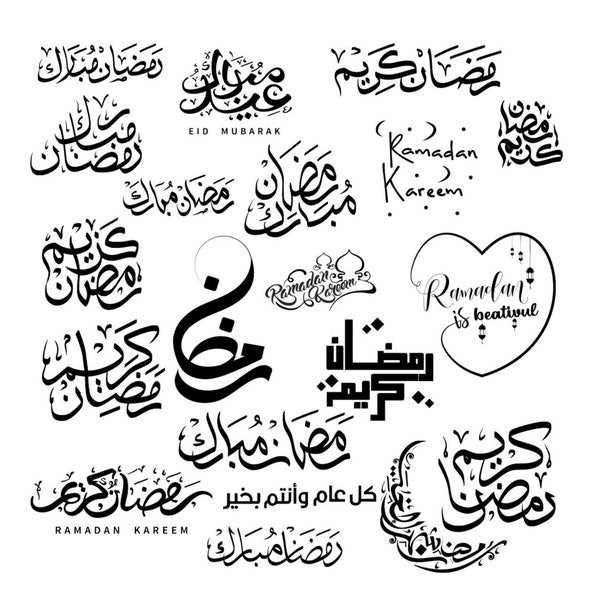 رمضان مبارك
عيد مبارك
EID MUBARAK
رمضان كريم
رمضان مبارك
Ramadan
Kareem
رمضان
كريم
رمضان مبارك
رمضان
مبارك
رمضان
كريم
رمضان
Ramadan
Kareem
Ramadan
is beativul
رمضان
كريم
رمضان
كريم
رمضان مبارك
رمضان كريم
RAMADAN KAREEM
كل عام وأنتم بخير
رمضان
كريم
رمضان مبارك